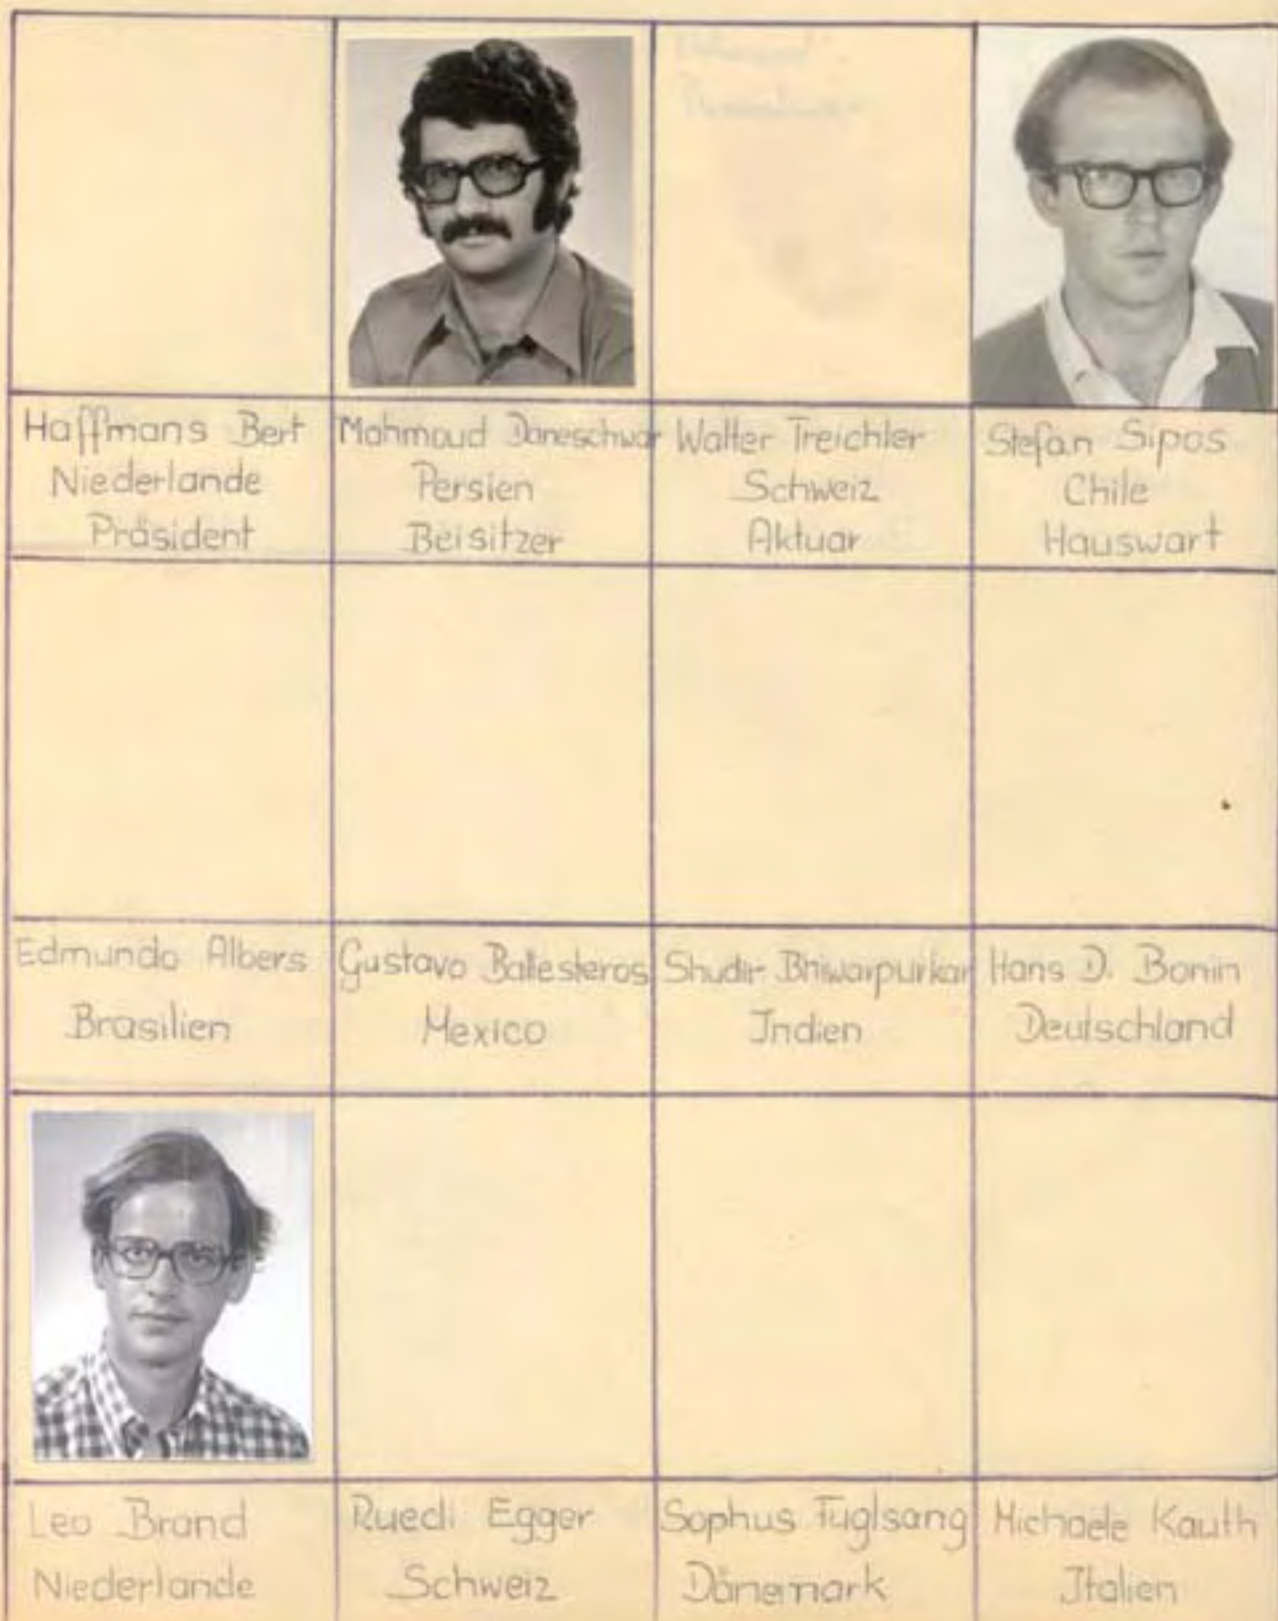 Haffmans Bert
Niederlande
Präsident
Mahmoud Daneschwar
Persien
Beisitzer
Walter Treichler
Schweiz
Aktuar
Stefan Sipos
Chile
Hauswart
Edmundo Albers
Brasilien
Gustavo Ballesteros
Mexico
Shudir Bhiwarpurkar
Indien
Hans D. Bonin
Deutschland
Leo Brand
Niederlande
Ruedi Egger
Schweiz
Sophus Fuglsang
Dänemark
Michaele Kauth
Italien